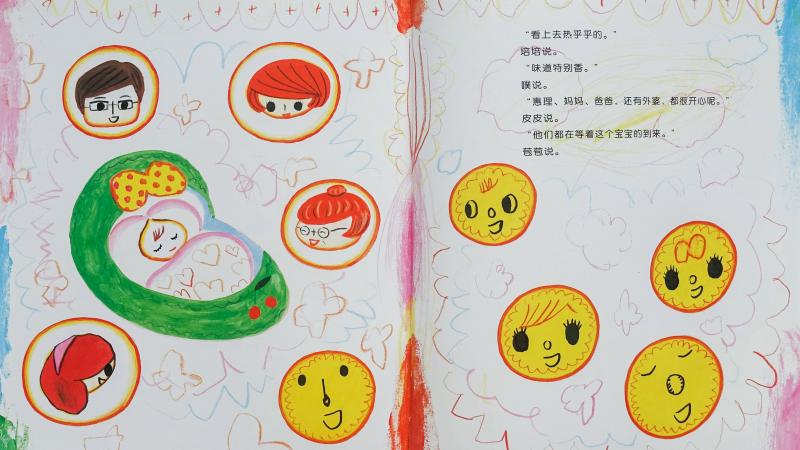 “看上去热乎乎的。”
培培说。
“味道特别香。”
噗说。
“惠理、妈妈、爸爸、还有外婆，都很开心呢。”
皮皮说。
“他们都在等着这个宝宝的到来。”
苞苞说。